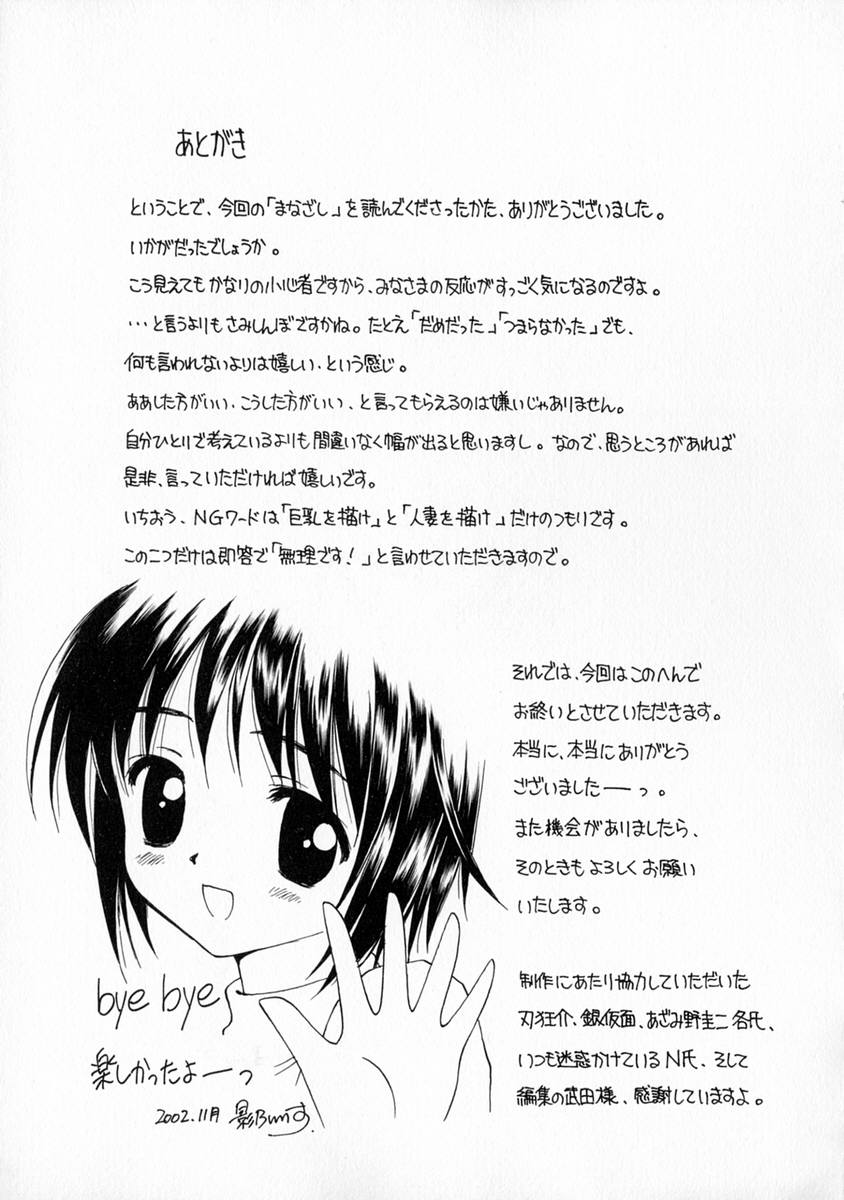 あとがき
ということで、今回の「まなざし」を読んでくださったかた、ありがとうございました。
いかがだったでしょうか。
こう見えてもかなりの小心者ですから、みなさまの反応がすっごく気になるのですよ。
…と言うよりもさみしんぼですかね。たとえ「だめだった」「つまらなかった」でも、
何も言われないよりは嬉しい、という感じ。
ああした方がいい、こうした方がいい、と言ってもらえるのは嫌いじゃありません。
自分ひとりで考えているよりも間違いなく幅が出ると思いますし。なので、思うところがあれば
是非、言っていただければ嬉しいです。
いちおう、NGワードは「巨乳を描け」と「人妻を描け」だけのつもりです。
この二つだけは即答で「無理です!」と言わせていただきますので。
それでは、今回はこのへんで
お終いとさせていただきます。
本当に、本当にありがとう
ございましたーっ。
また機会がありましたら、
そのときもよろしくお願い
いたします。
制作にあたり協力していただいた
刃狂介、銀仮面、あざみ野圭二各氏、
いつも迷惑かけているN氏、そして
編集の武田様、感謝していますよ。
bye bye
楽しかったよーっ
2002.11月